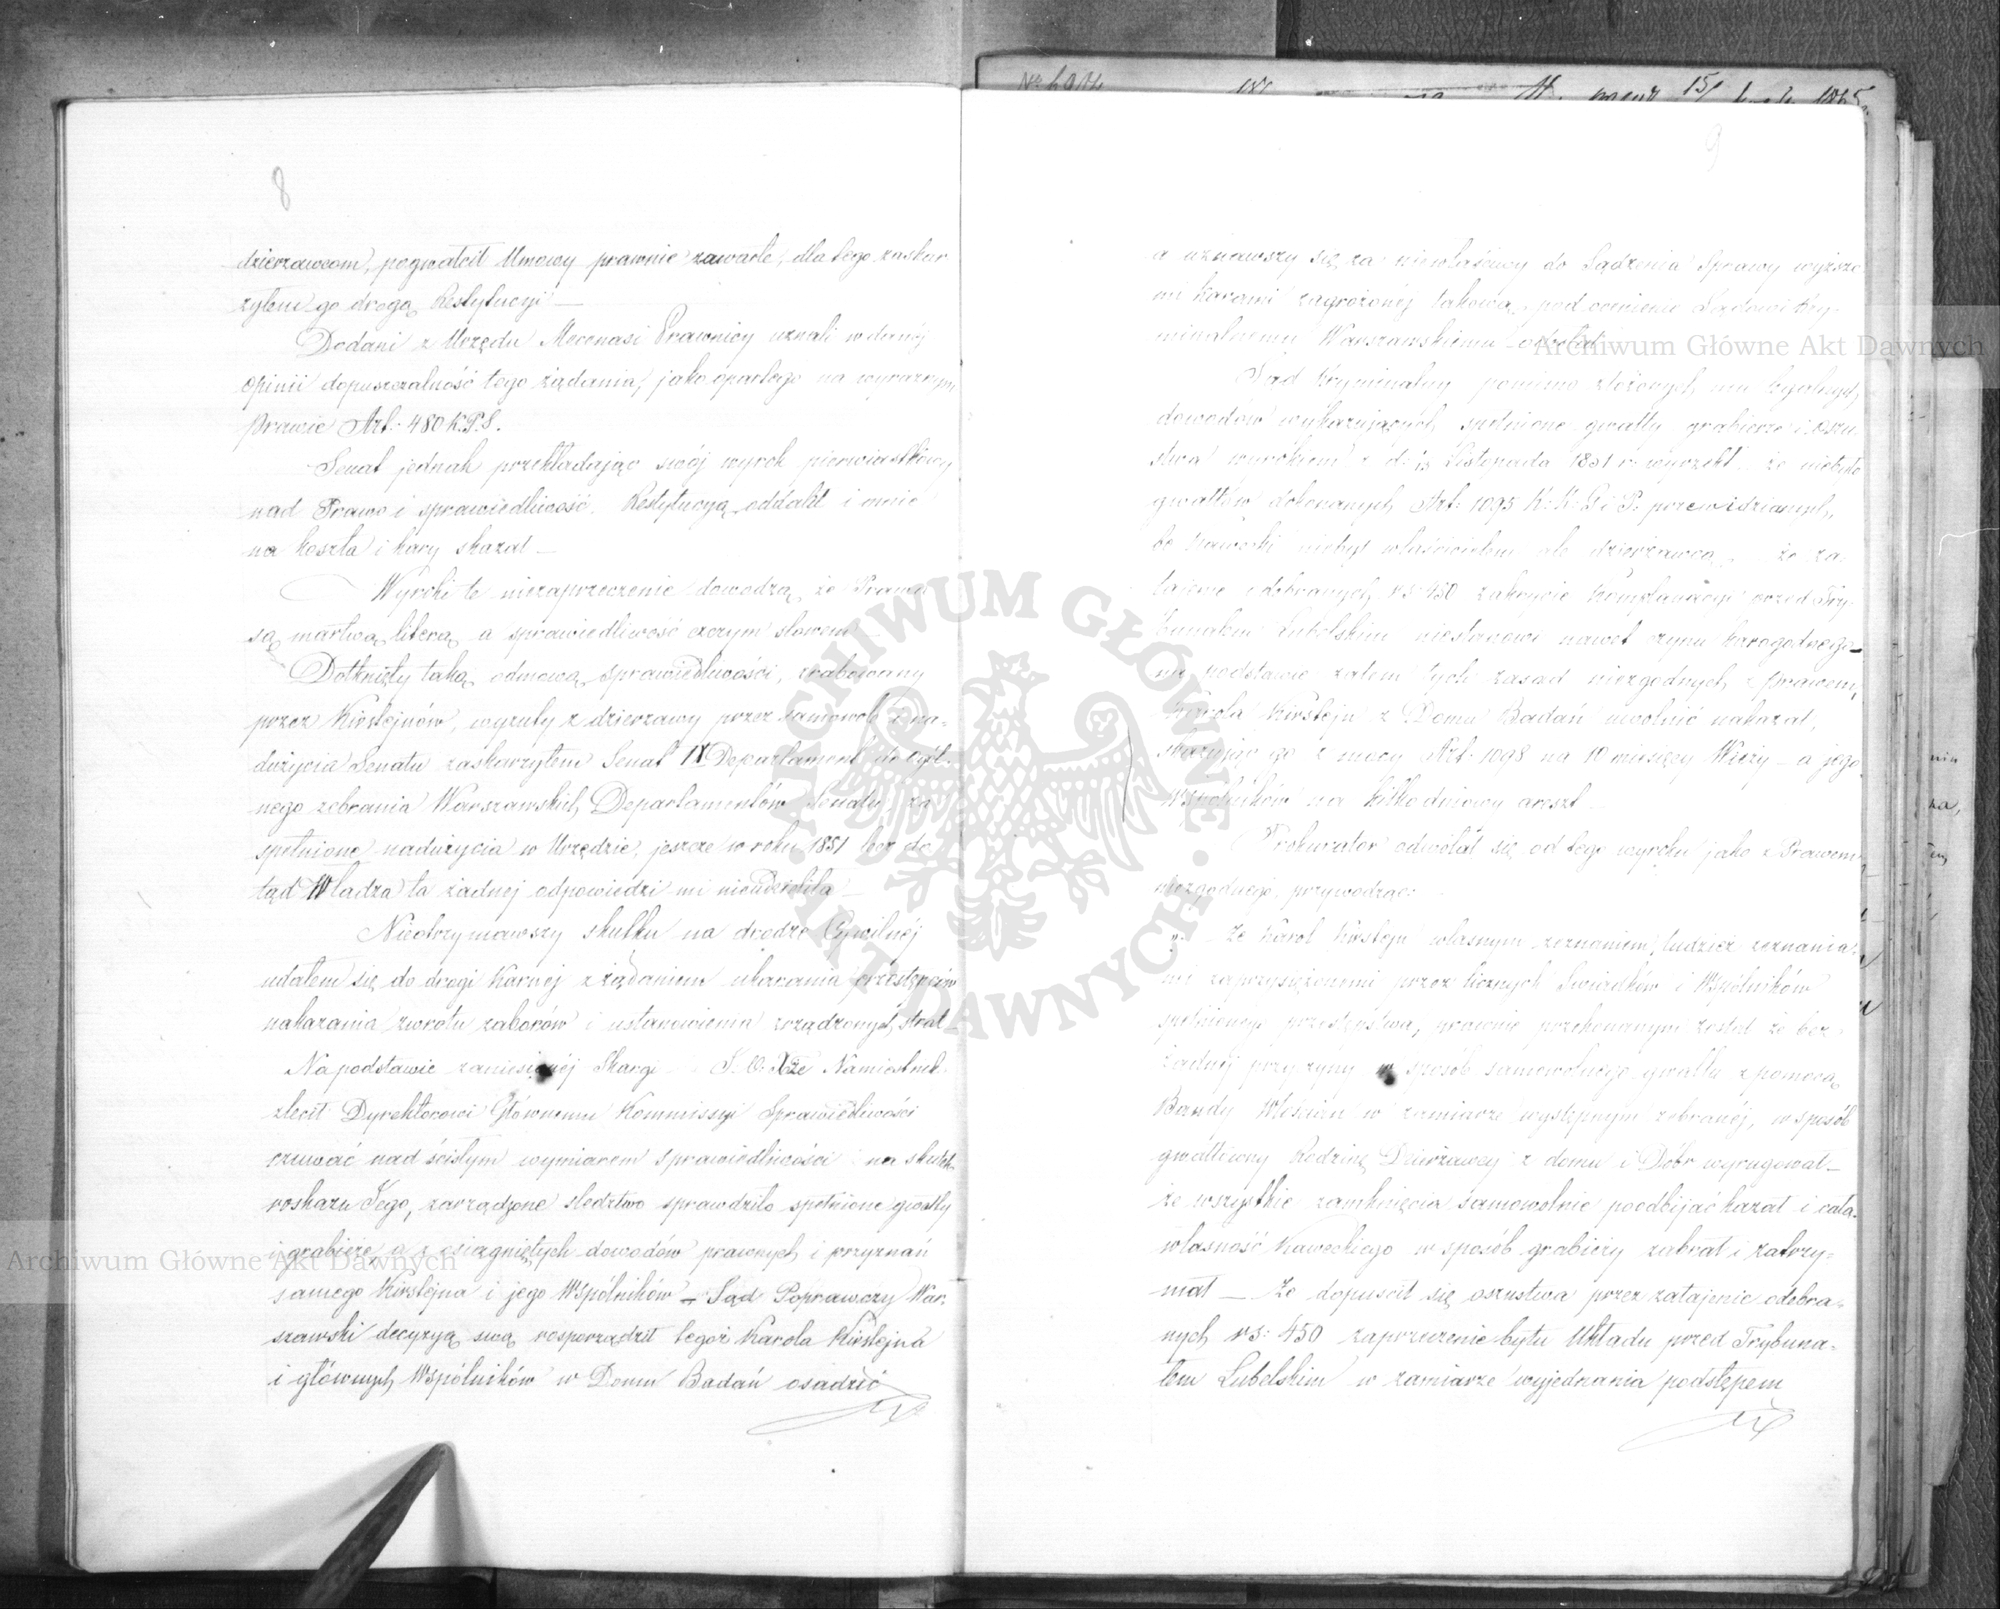 8
dzierzawcom, pogwałcił Umowy prawnie zawarte, dla tego zaskar
żyłem go drogą Restytucyi —
Dodani z Urzędu Mecenasi Prawnicy uznali w danéj
opinii dopuszczalność tego żądania, jako opartego na wyraznym
Prawie Art. 480 K.P.S.
Senat jednak przekładając swój wyrok pierwiastkowy
nad Prawo i sprawiedliwość, Restytucyą oddalił i mnie
na koszta i kary skazał —
Wyroki te niezaprzeczenie dowodzą, że Prawa
są martwą literą a sprawiedliwość czczym słowem —
Dotknięty taką odmową sprawiedliwości, zrabowany
przez Kirstejnów, wyzuty z dzierzawy przez samowolę i na-
dużycia Senatu zaskarżyłem Senat IX Departament do ogól-
nego zebrania Warszawskich Departamentów Senatu, za
spełnione nadużycia w Urzędzie, jeszcze w roku 1851 lecz do
tąd Władza ta żadnej odpowiedzi mi nieudzieliła —
Nieotrzymawszy skutku na drodze Cywilnéj
udałem się do drogi Karnéj z żądaniem ukarania przestępców
nakazania zwrotu zaborów i ustanowienia zrządzonych strat —
Na podstawie zaniesionéj Skargi J. O. Xże Namiestnik
zlecił Dyrektorowi Głównemu Kommissyi Sprawiedliwości
czuwać nad ścisłym wymiarem sprawiedliwości na skutek
roskazu Jego, zarządzone śledztwo sprawdziło spełnione gwałty
i grabieże, a z osiągniętych dowodów prawnych i przyznań
samego Kirstejna i jego Wspólników — Sąd Poprawczy War-
szawski decyzyą swą rosporządził tegoż Karola Kirstejna
i głównych Wspólników w Domu Badań osadzić
9
a uznawszy się za niewłaściwy do Sądzenia Sprawy wyższe
mi karami zagrożonéj takową pod ocenienie Sądowi Kry-
minalnemu Warszawskiemu odesłał
Sąd Kryminalny pomimo złożonych mu legalnych
dowodów wykazujących spełnione gwałtu grabieże i oszu
stwa wyrokiem z d. Listopada 1851 r. wyrzekł, że niebyło
gwałtów dokonanych Art. 1095 K: K: G: i P: przewidzianych,
bo Kawecki niebył właścicielem ale dzierżawcą, — że za
tajenie odebranych rs: 450 zakrycie przed Try-
bunałem Lubelskim niestanowi nawet czynu karogodnego —
na podstawie zatem tych zasad niezgodnych z prawem,
Karola Kirstejn z Domu Badań uwolnić nakazał,
skazując go z mocy Art. 1098 na 10 miesięcy Wieży — a jego
Wspólników na kilkodniowy areszt —
Prokurator odwołał się od tego wyroku jako z Prawem
niezgodnego, przywodząc:
że Karol Kirstejn własnym zeznaniem, tudzież zeznania-
mi zaprzysiężonemi przez licznych Świadków i Wspólników
spełnionego przestępstwa, prawnie przekonanym został że bez
żadnéj przyczyny w sposób samowolnego gwałtu z pomocą
Bandy Włościan w zamiarze występnym zebranéj, w sposób
gwałtowny Rodzinę Dzierżawcy z domu i Dóbr wyrugował —
że wszystkie zamknięcia samowolnie poodbijać kazał i całą
własność Kaweckiego w sposób grabieży zabrał i zatrzy-
mał — Że dopuścił się oszustwa przez zatajenie odebra-
nych rs: 450 zaprzeczenie bytu Układu przed Trybuna-
łem Lubelskim w zamiarze wyjednania podstępem
Archiwum Główne Akt Dawnych
Archiwum Główne Akt Dawnych
ARCHIWUM GŁÓWNE AKT DAWNYCH